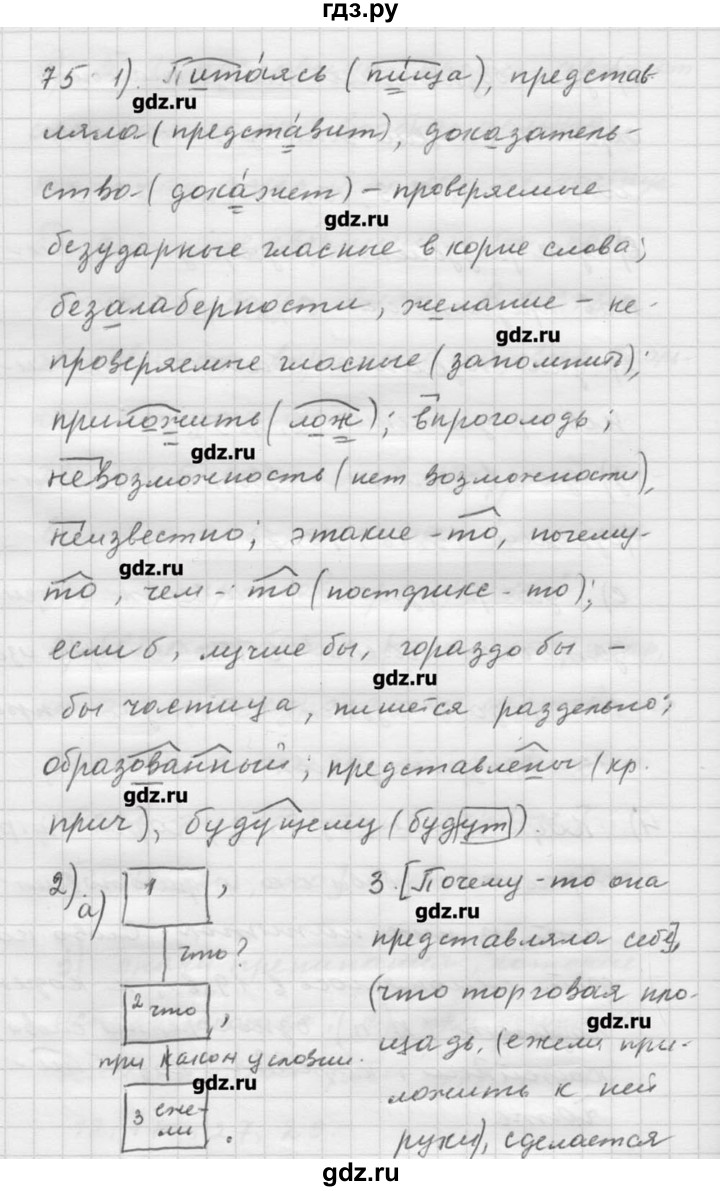 гдз.ру
75. 1). Питаясь (пища), представ-
gdz.ru
ляла (представит), доказатель-
ство (докажет) – проверяемые
gdz.ru
безударные гласные в корне слова;
безалаберности, желание – не-
gdz.ru
проверяемые гласные (запомнить);
приложить (лож); впроголодь;
gdz.ru
невозможность (нет возможности),
неизвестно; этакие-то, почему-
gdz.ru
то, чем-то (постфикс -то);
если б, лучше бы, гораздо бы –
gdz.ru
бы частица, пишется раздельно;
образованный; представлены (кр.
gdz.ru
прич), будущему (будут).
2) а) 1 ,
что?
2 что ,
при каком условии.
gdz.ru
3 еже-
ли .
3. [Почему-то она
gdz.ru
представляла себе],
(что торговая пло-
gdz.ru
щадь, (ежели при-
ложить к ней
руки), сделается
gdz.ru